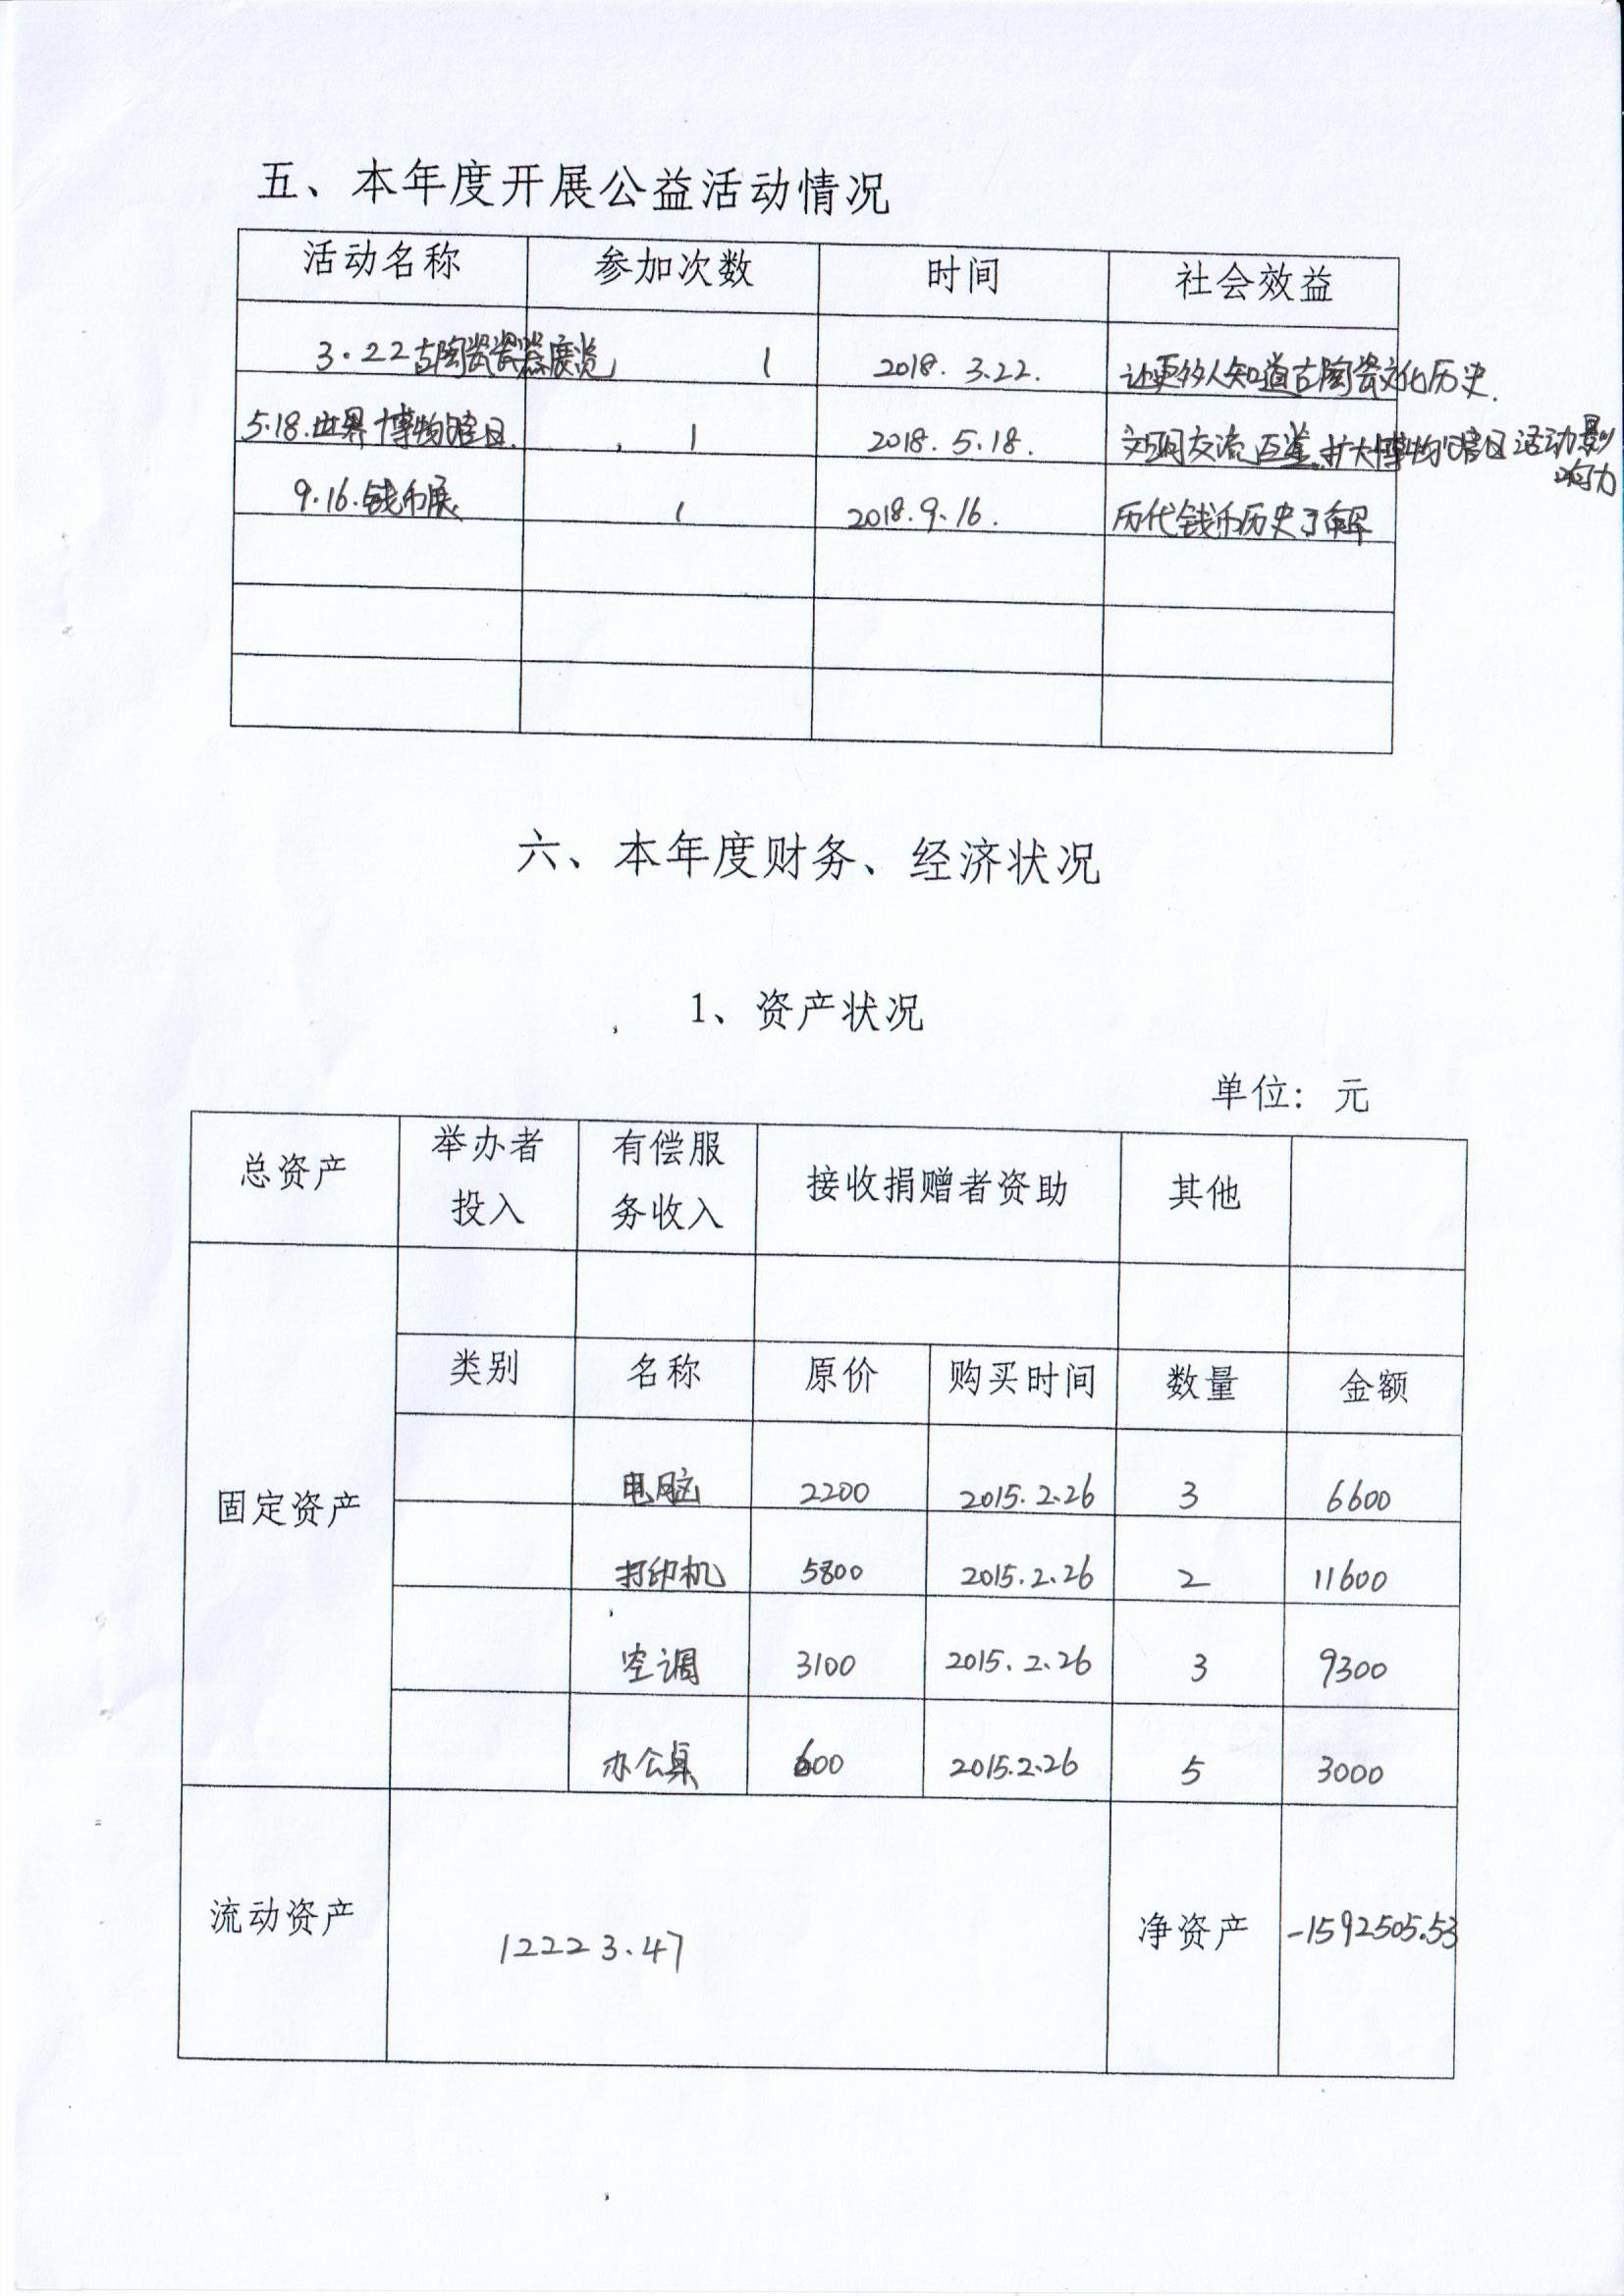 五、本年度开展公益活动情况
活动名称 参加次数 时间 社会效益
3.22古陶瓷瓷器展览 1 2018.3.22. 让更多人知道古陶瓷文化历史.
5.18.世界博物馆日. 1 2018.5.18. 文明交流互鉴.扩大博物馆日活动影
响力
9.16.钱币展 1 2018.9.16. 历代钱币历史了解
六、本年度财务、经济状况
1、资产状况
单位：元
总资产 举办者 有偿服 接收捐赠者资助 其他
投入 务收入
类别 名称 原价 购买时间 数量 金额
固定资产
电脑 2200 2015.2.26 3 6600
打印机 5800 2015.2.26 2 11600
空调 3100 2015.2.26 3 9300
办公桌 600 2015.2.26 5 3000
流动资产 12223.47 净资产 -1592505.53